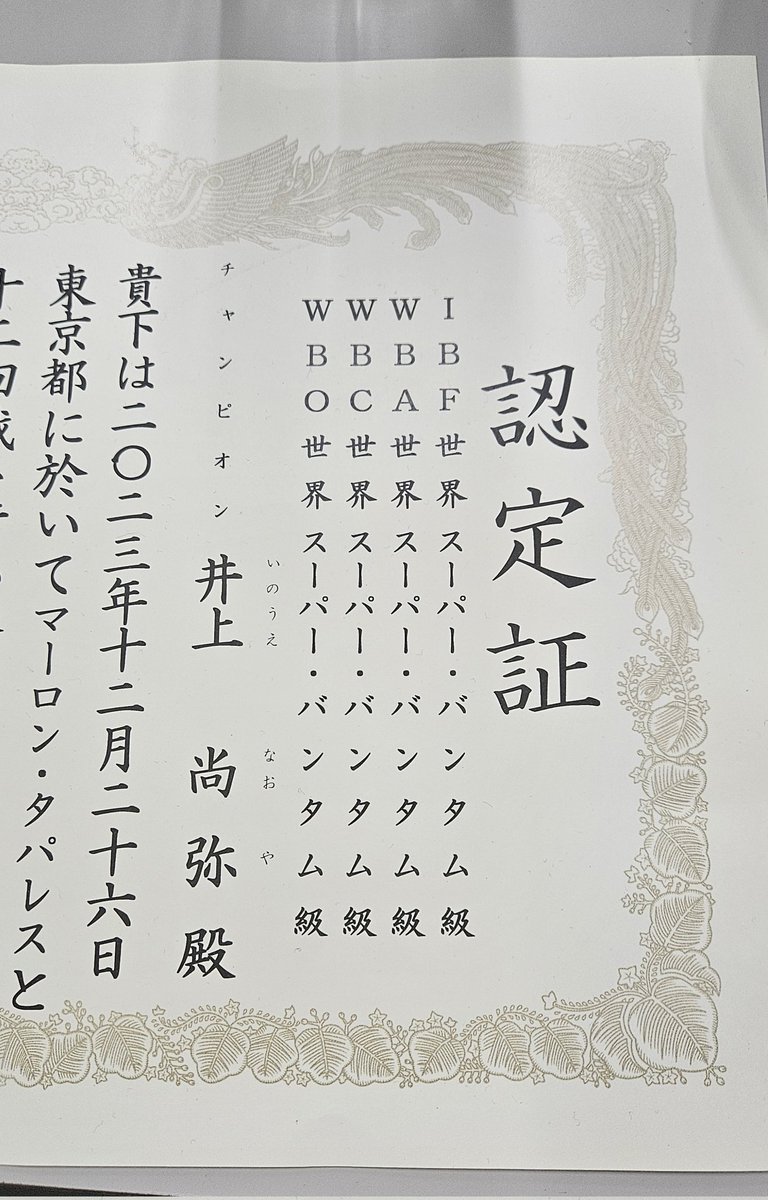 認定証
IBF世界スーパー・バンタム級
WBA世界スーパー・バンタム級
WBC世界スーパー・バンタム級
WBO世界スーパー・バンタム級
いのうえ なおや
チャンピオン 井上 尚弥 殿
貴下は二〇二三年十二月二十六日
東京都に於いてマーロン・タパレスと
十二回戦